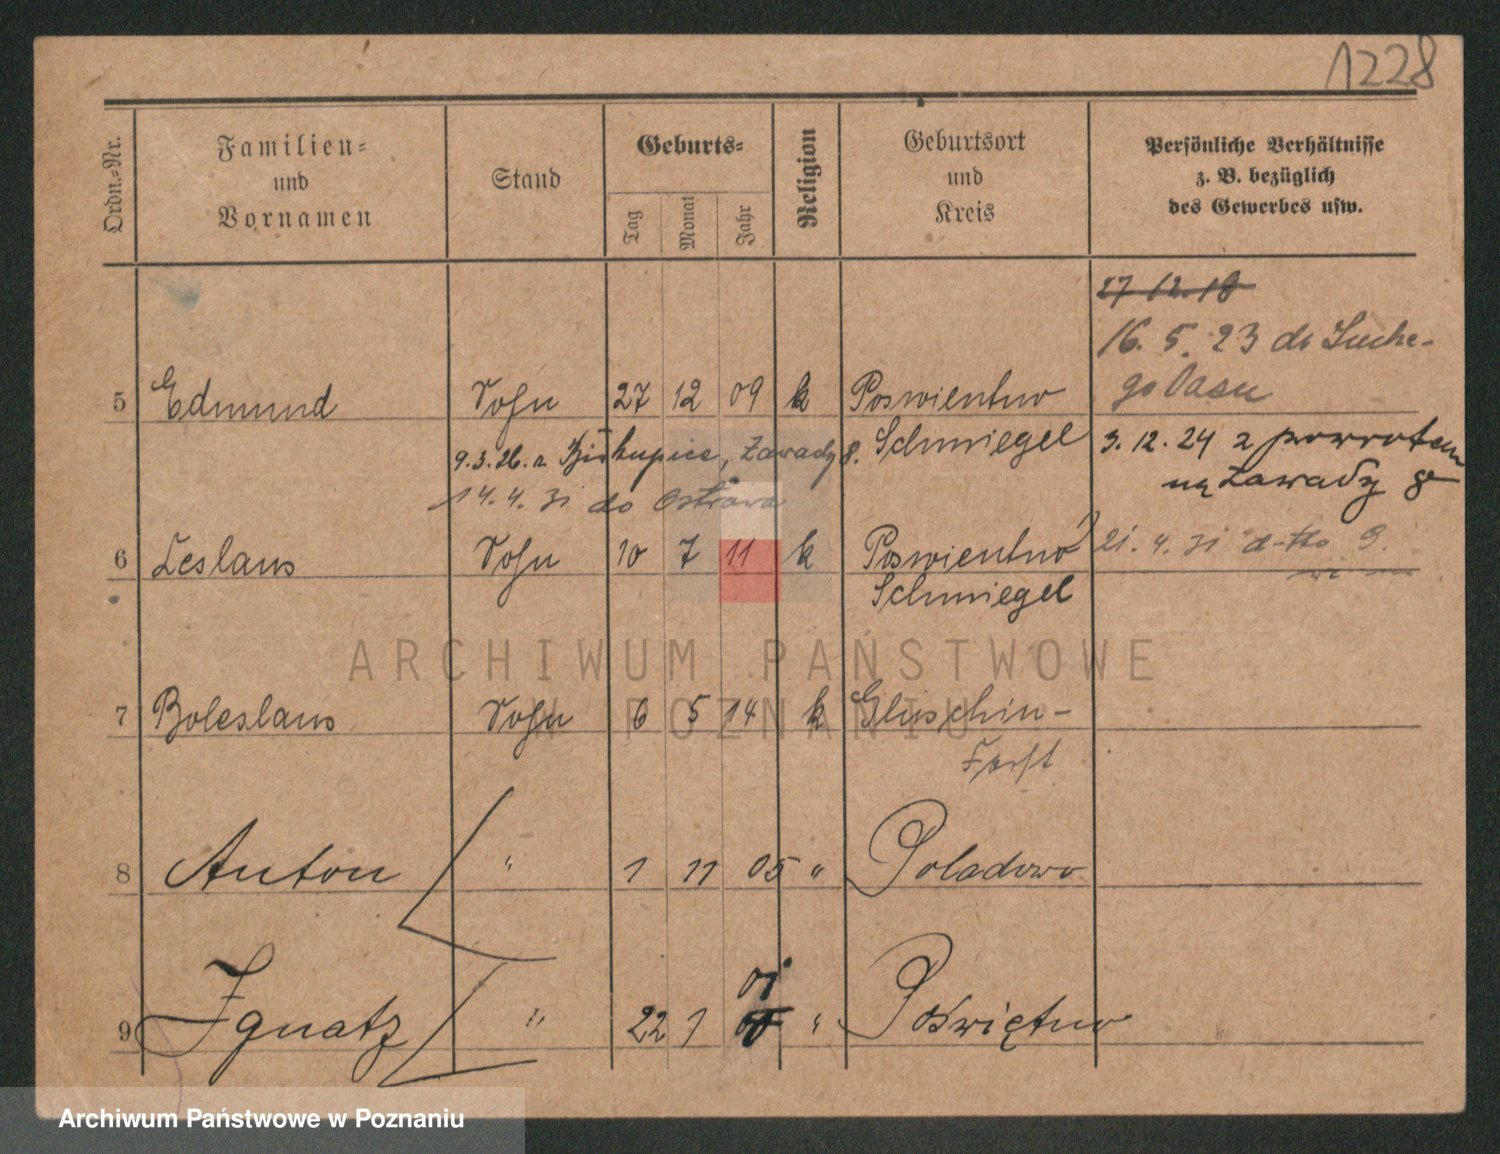 1228
Ordn.-Nr.
Familien-
und
Vornamen
Stand
Geburts-
Tag
Monat
Jahr
Religion
Geburtsort
und
Kreis
Persönliche Verhältnisse
z. B. bezüglich
des Gewerbes usw.
27 12. 18
16. 5. 23 do Suche-
go Lasu
5 Edmund Sohn 27 12 09 k Poswientno
Schmiegel
3. 12. 24 z powrotem
na Zawady 8
9. 3. 26. z Biskupice, Zawady 8.
14. 4. 31 do Ostrowa
6 Leslaus Sohn 10 7 11 k Poswientno
Schmiegel
21. 4. 31 d-tto
7 Boleslaus Sohn 6 5 14 k Gluschin-
Forst
8 Anton " 1 11 05 " Poladowo
01
9 Ignatz " 22 1 " Poświętno
ARCHIWUM PAŃSTWOWE
W POZNANIU
Archiwum Państwowe w Poznaniu